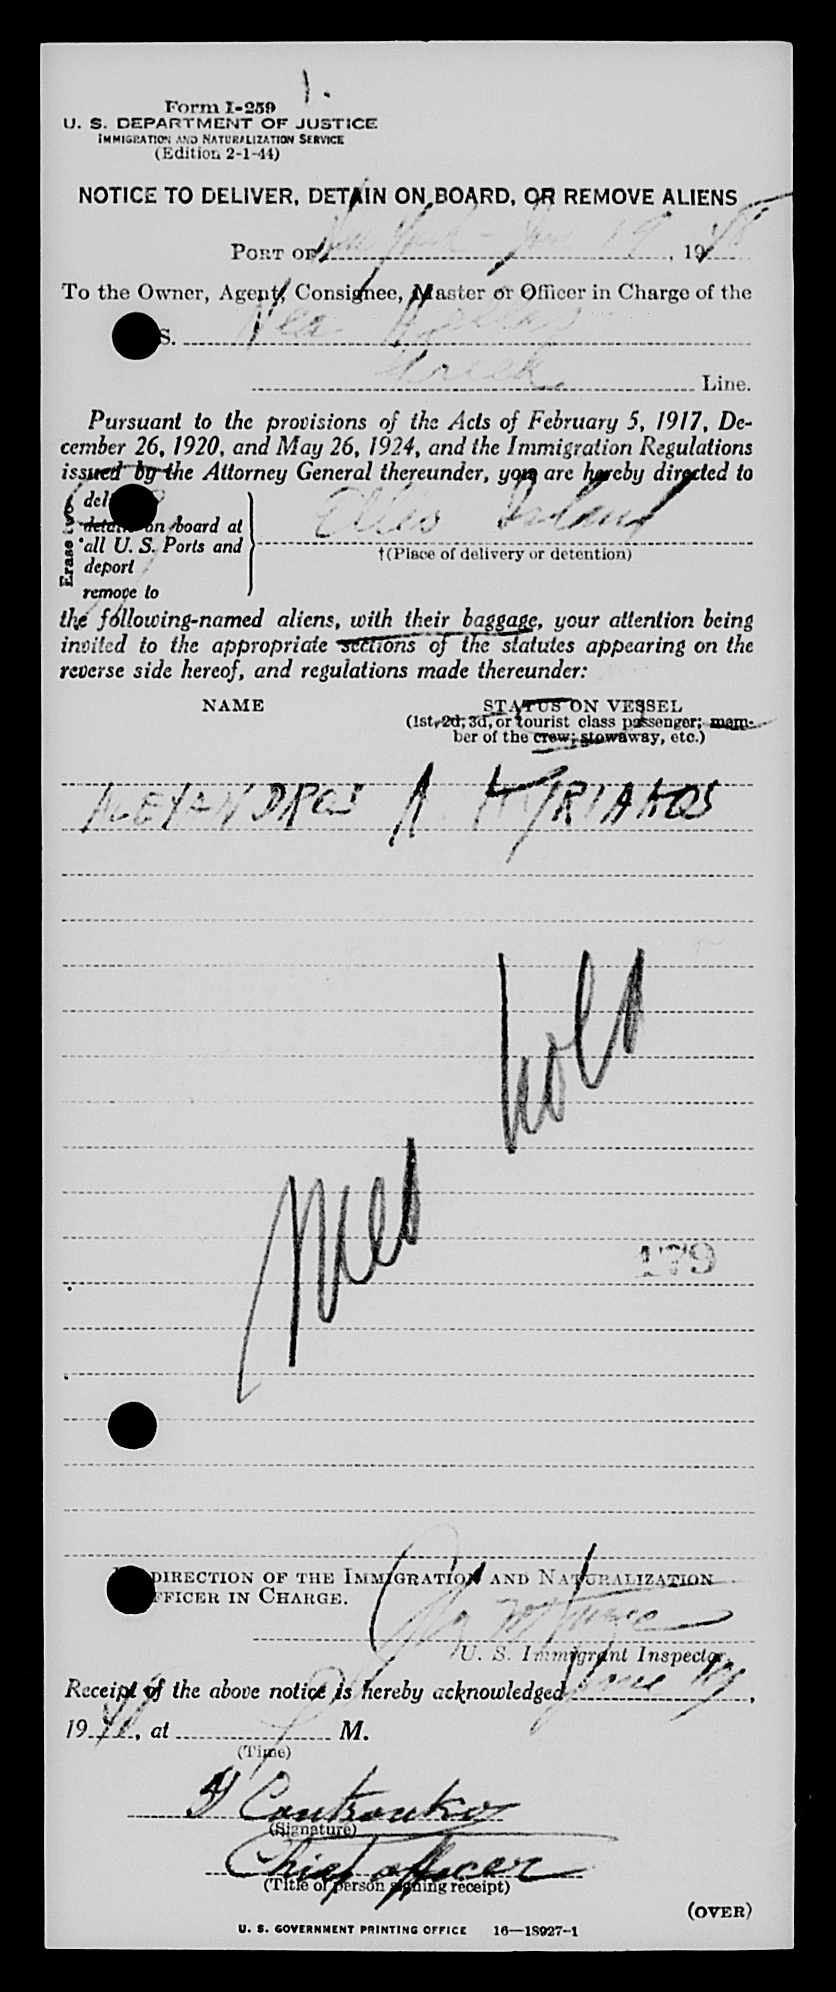 1.
Form I-259
U. S. DEPARTMENT OF JUSTICE
IMMIGRATION AND NATURALIZATION SERVICE
(Edition 2-1-44)
NOTICE TO DELIVER, DETAIN ON BOARD, OR REMOVE ALIENS
PORT OF New York - June 19, 19
To the Owner, Agent, Consignee, Master or Officer in Charge of the
S. Nea Hellas
Greek Line.
Pursuant to the provisions of the Acts of February 5, 1917, De-
cember 26, 1920, and May 26, 1924, and the Immigration Regulations
issued by the Attorney General thereunder, you are hereby directed to
Erase two
del
detain on board at
all U. S. Ports and
deport
remove to
Ellis Island
†(Place of delivery or detention)
the following-named aliens, with their baggage, your attention being
invited to the appropriate sections of the statutes appearing on the
reverse side hereof, and regulations made thereunder:
NAME STATUS ON VESSEL
(1st, 2d, 3d, or tourist class passenger; mem-
ber of the crew; stowaway, etc.)
ALEXANDROS A. KYRIAKOS
Med hold
179
DIRECTION OF THE IMMIGRATION AND NATURALIZATION
FFICER IN CHARGE.
U. S. Immigrant Inspector.
Receipt of the above notice is hereby acknowledged June 19,
19, at M.
(Time)
(Signature)
Chief officer
(Title of person signing receipt)
(OVER)
U. S. GOVERNMENT PRINTING OFFICE 16—18927-1